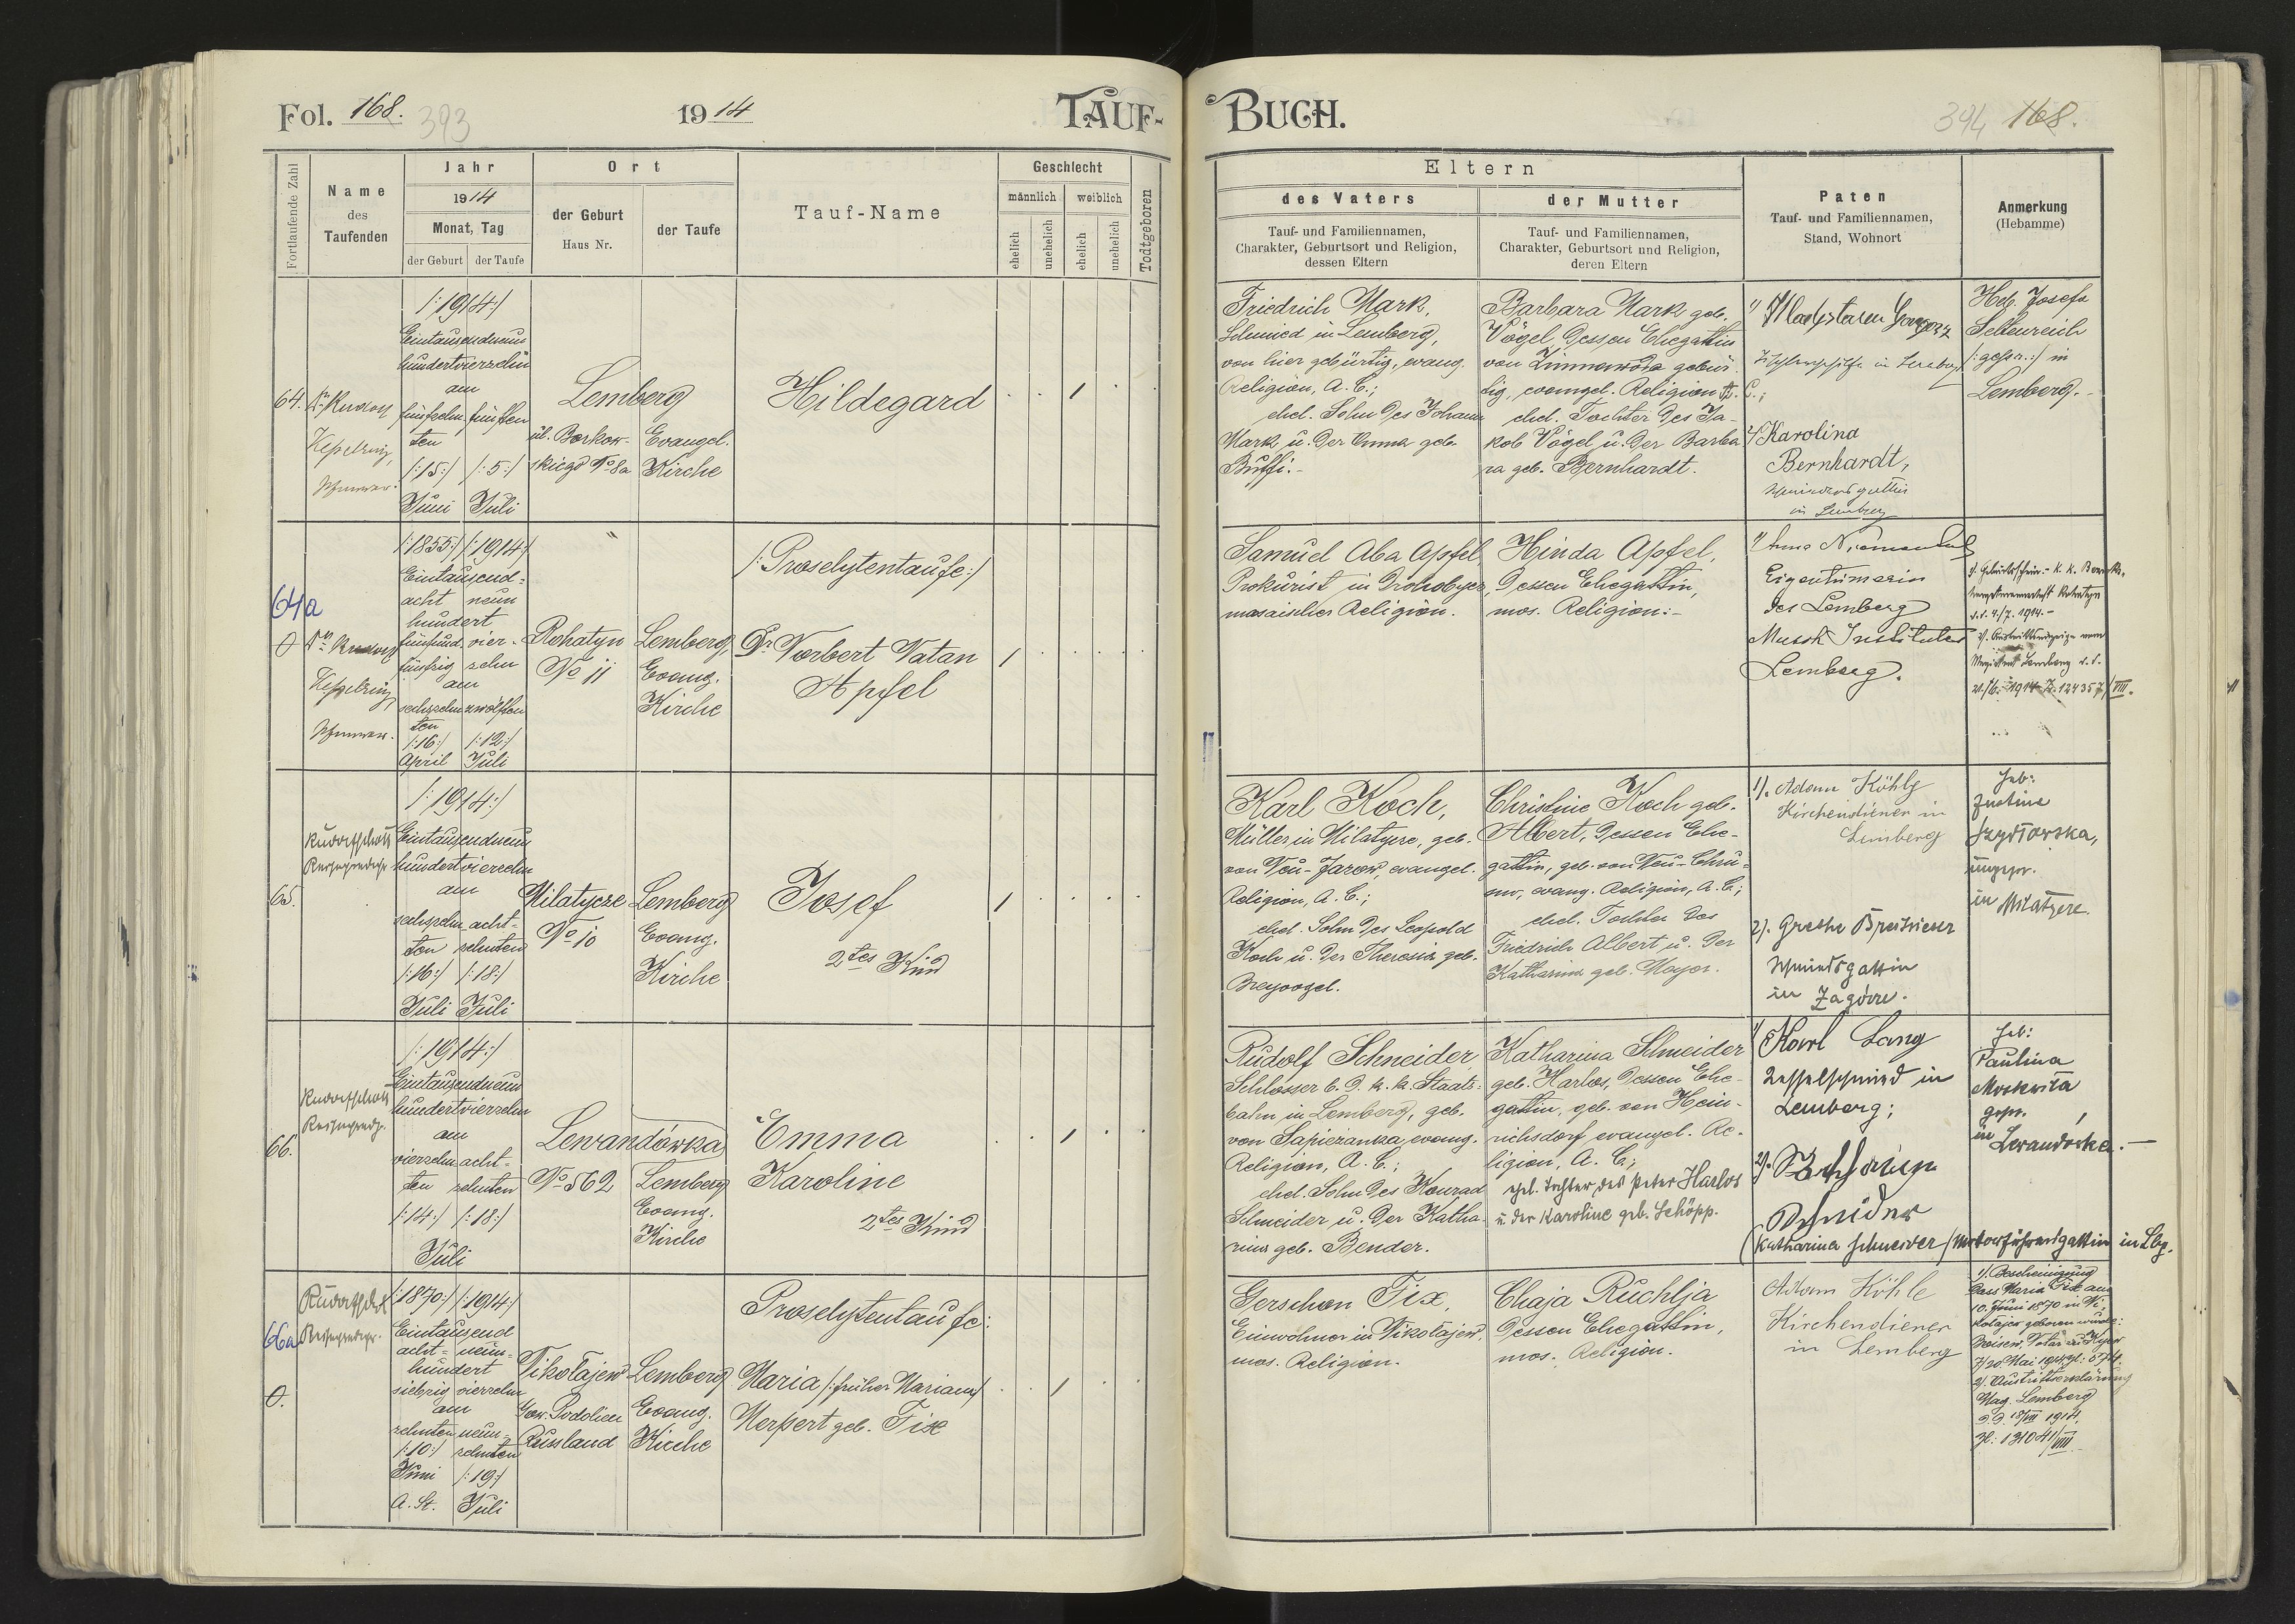 Fol. 168.
393
1914
TAUF-
BUCH.
394 168.
Fortlaufende Zahl
Name
des
Taufenden
Jahr
1914
Monat, Tag
der Geburt
der Taufe
Ort
der Geburt
Haus Nr.
der Taufe
Tauf-Name
Geschlecht
männlich
weiblich
ehelich
unehelich
ehelich
unehelich
Todtgeboren
Eltern
des Vaters
Tauf- und Familiennamen,
Charakter, Geburtsort und Religion,
dessen Eltern
der Mutter
Tauf- und Familiennamen,
Charakter, Geburtsort und Religion,
deren Eltern
Paten
Tauf- und Familiennamen,
Stand, Wohnort
Anmerkung
(Hebamme)
64.
Dr. Rudolf
Kesselring,
/:1914:/
Eintausendneun
hundertvierzehn
am
fünfzehn
ten
/:15:/
Juni
fünften
/:5:/
Juli
Lemberg
ul. Borkow-
skiego No 8a
Evangel.
Kirche
Hildegard
Friedrich Mark,
Schmied in Lemberg,
von hier gebürtig, evang.
Religion, A. C.;
ehel. Sohn des Johann
Mark u. der Emma geb.
Buffi.-
Barbara Mark geb.
Vögel, dessen Ehegattin
von Zimnawoda gebür-
tig, evangel. Religion A. C.;
ehel. Tochter des Ja-
kob Vögel u. der Barba
ra geb. Bernhardt.
1/
in Lemberg
2/ Karolina
Bernhardt,
Schmiedsgattin
in Lemberg
Heb. Josefa
Seltenreich
/:gepr.:/ in
Lemberg.-
64a
0
Dr. Rudolf
Kesselring,
/:1855:/ /:1914:/
Eintausend-
acht neun
hundert
fünfund- vier-
fünfzig zehn
am
sechszehn zwölften
ten
/:16:/ /:12:/
April Juli
"
Rohatyn
No 11
Lemberg,
Evang.
Kirche
/:Proselytentaufe:/
Dr Norbert Natan
Apfel
Samuel Aba Apfel,
Prokurist in Drohobycz,
mosaischer Religion.
Hinda Apfel,
dessen Ehegattin,
mos. Religion:-
1/ Anna
Eigentümerin
des Lemberg
Musik Institutes
Lemberg.
1/. Geburtsschein - k. k. Bezirks-
Rohatyn
d.d. 4/7. 1914.-
2/. Austrittsanzeige vom
Magistrat Lemberg d. d.
1914 Z. 124357/VIII.
65.
Rudolf Scholtz
/:1914:/
Eintausendneun
hundertvierzehn
am
sechszehn acht-
ten zehnten
/:16:/ /:18:/
Juli Juli
Milatycze
No 10
Lemberg
Evang.
Kirche
Josef
2tes Kind
Karl Koch,
Müller in Milatycze, geb.
von Neu-Jarow, evangel.
Religion, A. C.;
ehel. Sohn des Leopold
Koch u. der Theresia geb.
Breyvogel.
Christine Koch geb.
Albert, dessen Ehe-
gattin, geb. von Neu-Chru-
sno, evang. Religion, A. C.;
ehel. Tochter des
Friedrich Albert u. der
Katharina geb. Mayer.
1/. Adam Köhle
Kirchendiener in
Lemberg
2/. Grethe
Schmiedsgattin
in Zagórze.
Heb:
Justine
Szydłowska,
ungepr.
in Milatycze.
66.
Rudolf Scholtz
/:1914:/
Eintausendneun
hundertvierzehn
am
vierzehn acht-
ten zehnten
/:14:/ /:18:/
Juli
Lewandówka
No 562
Lemberg
Evang.
Kirche
Emma
Karoline
2tes Kind
Rudolf Schneider,
Schlosser b. d. k. k. Staats-
bahn in Lemberg, geb.
von Sapieżanka, evang.
Religion, A. C.;
ehel. Sohn des Konrad
Schneider u. der Katha-
rina geb. Bender.
Katharina Schneider
geb. Harlos, dessen Ehe-
gattin, geb. von Hein-
richsdorf, evangel. Re-
ligion, A. C.;
ehel. Tochter des Peter Harlos
u. der Karoline geb. Schöpp.
1/ Karl Lang
Kesselschmied in
Lemberg;
2/.
Schneider
(Katharina Schneider/Motorführersgattin in Lbg.
Heb:
Paulina
Moskwita
gepr.,
in Lewandówka.-
66a
0.
Rudolf Scholtz
/:1870:/ /:1914:/
Eintausend
acht- neun-
hundert
siebzig vierzehn
am
zehnten neun-
/:10:/ zehnten
Juni /:19:/
A. St. Juli
Nikołajew
Gow. Podolien
Russland
Lemberg
Evang.
Kirche
Proselytentaufe:
Maria /:früher Mariam/
Merpert geb. Fix
Gerschon Fix,
Einwohner in Nikołajew,
mos. Religion.
Chaja Ruchlja
dessen Ehegattin,
mos. Religion.
Adam Köhle
Kirchendiener
in Lemberg
1/. Bescheinigung
dass Maria Fix am
10. Juni 1870 in Ni-
kołajew geboren wurde:
Notar
Mai 1914,
2/. Austrittserklärung
Mag. Lemberg
d. d. 18/VII 1914,
Zl: 131041/VIII.